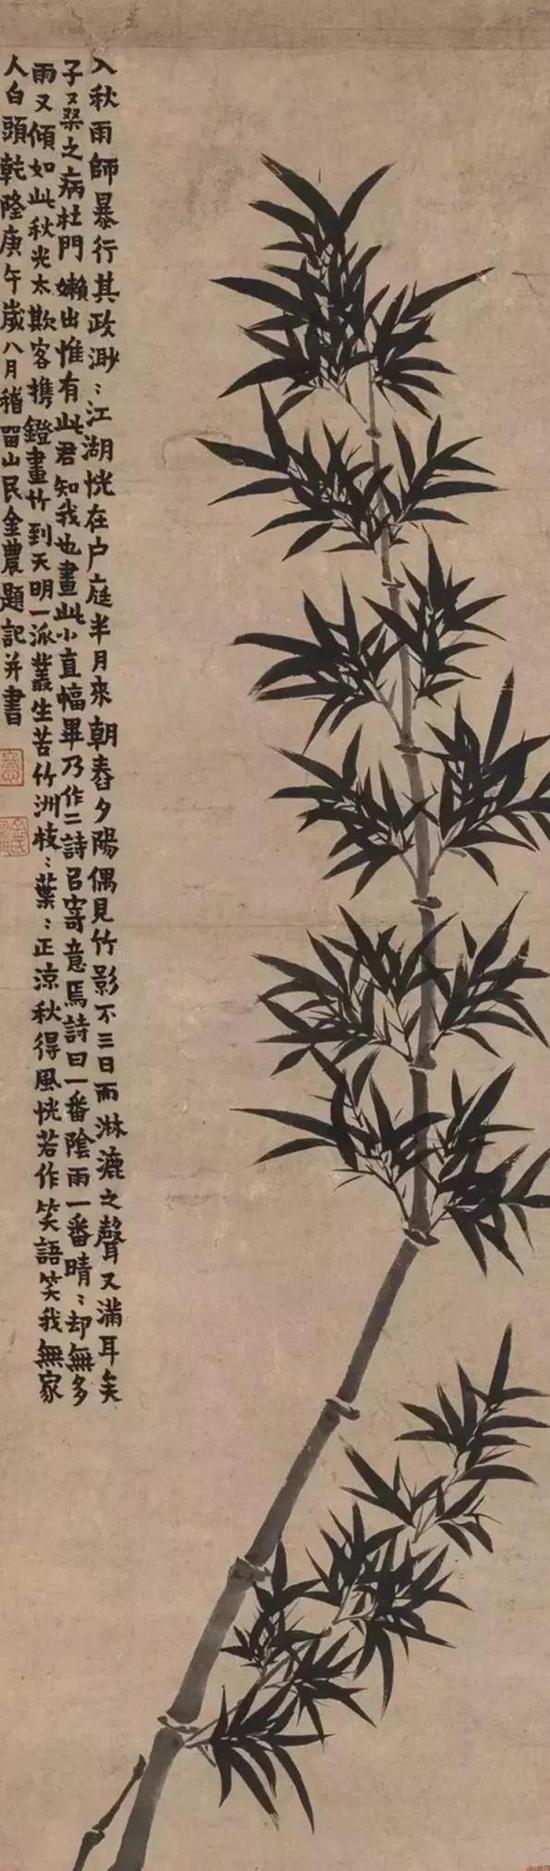 入秋雨師暴行其政渺〻江湖恍在户庭半月來朝暾夕陽偶見竹影不三日而淋漉之聲又滿耳矣
子又桑之病杜門嬾出惟有此君知我也畫此小直幅畢乃作二詩㠯寄意焉詩曰一番陰雨一番晴〻却無多
雨又傾如此秋光太欺客携鐙畫竹到天明一派叢生苦竹洲枝〻葉〻正涼秋得風恍若作笑語笑我無家
人白頭乾隆庚午歲八月稽留山民金農題記并書